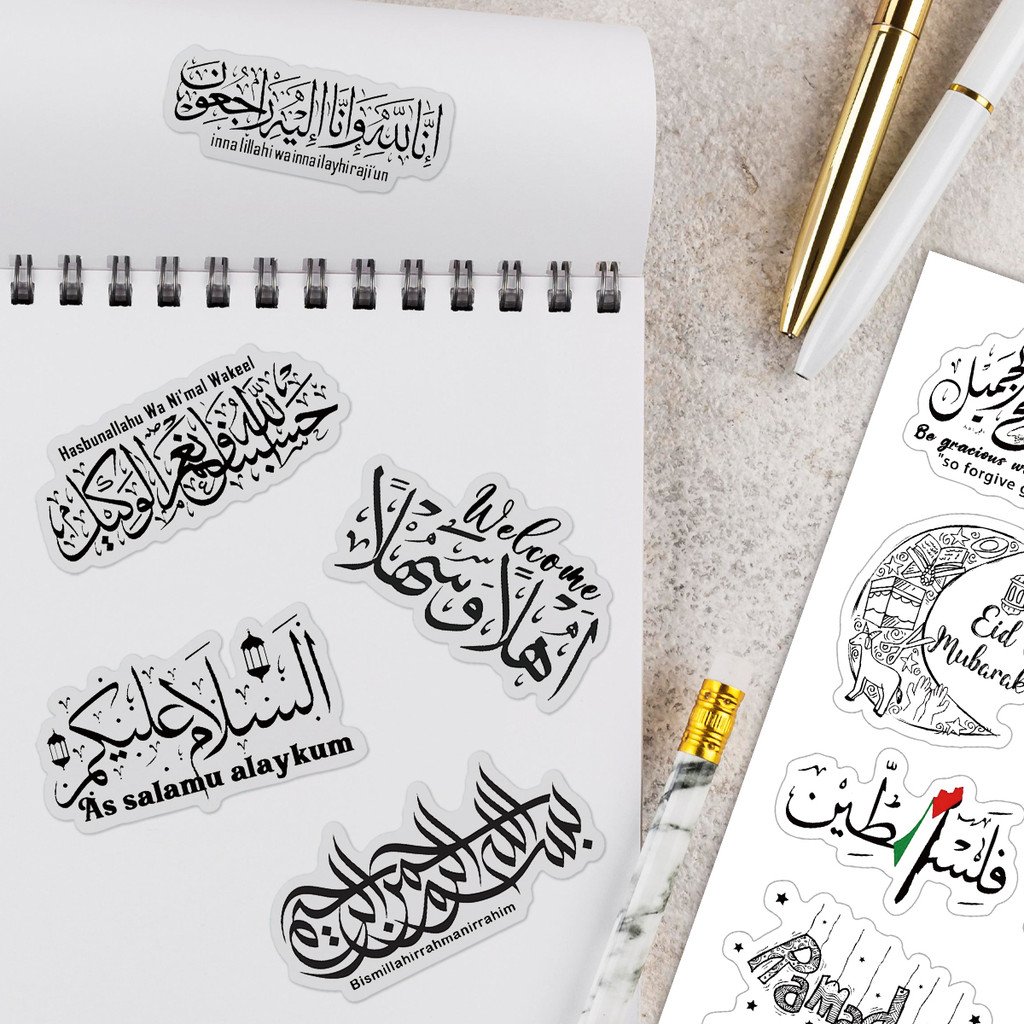 إِنَّا لِلّٰهِ وَإِنَّا إِلَيْهِ رَاجِعُونَ
inna lillahi wa inna ilayhi raji'un
Hasbunallahu Wa Ni'mal Wakeel
حَسْبُنَا اللّٰهُ وَنِعْمَ الْوَكِيْل
Welcome
أَهْلًا وَسَهْلًا
اَلسَّلَامُ عَلَيْكُمْ
As salamu alaykum
بسم الله الرحمن الرحيم
Bismillahirrahmanirrahim
الجَمِيْل
Be gracious
"so forgive
Eid
Mubarak
فِلَسْطِيْن
Ramad